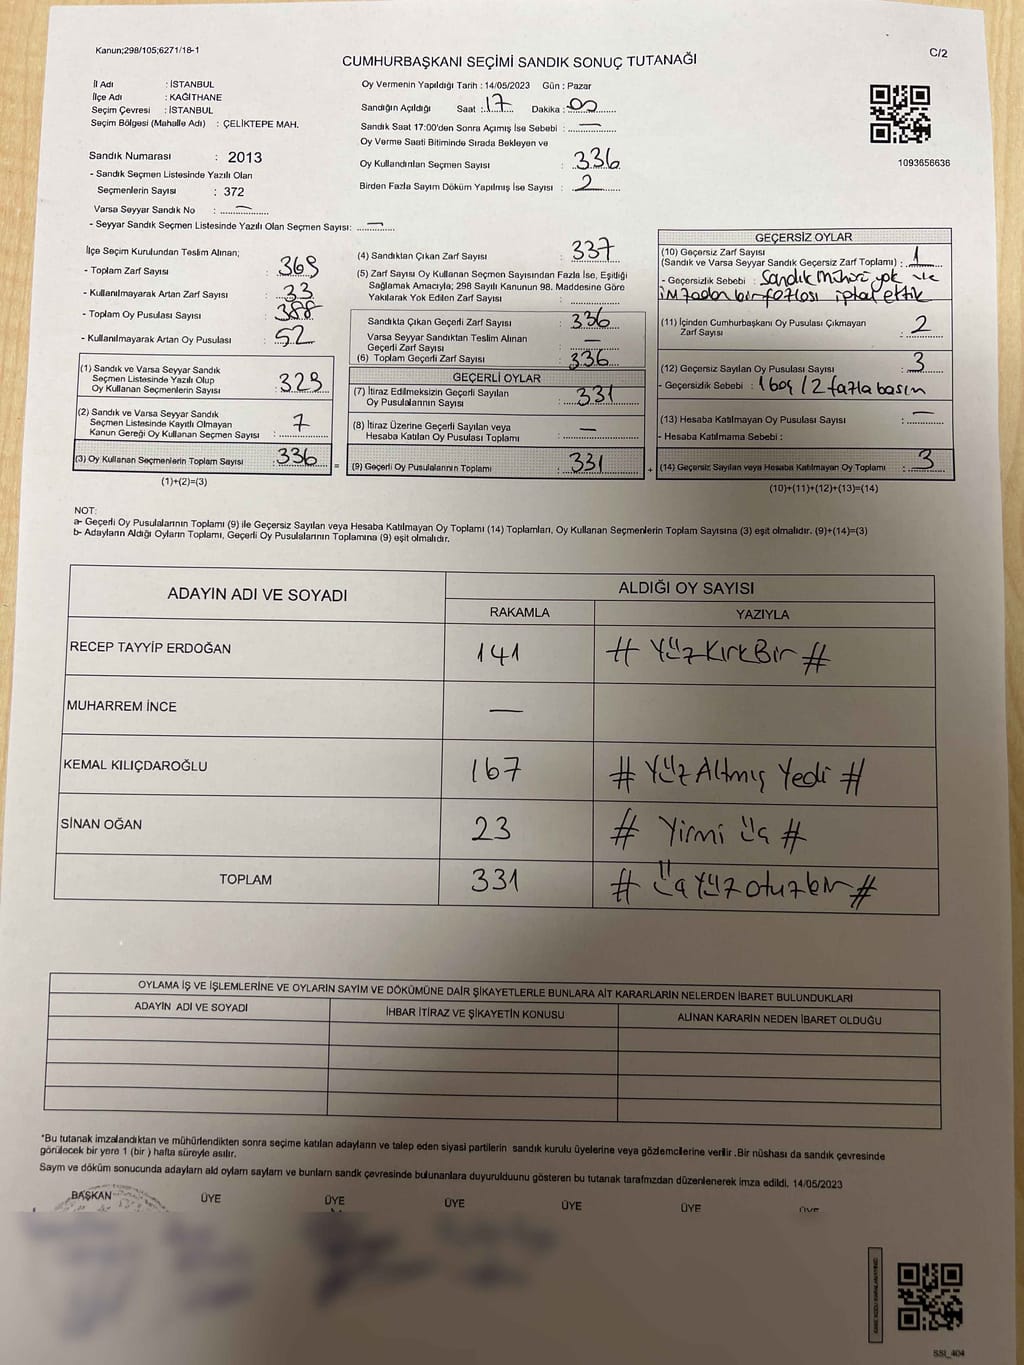 Kanun;298/105;6271/18-1
C/2
CUMHURBAŞKANI SEÇİMİ SANDIK SONUÇ TUTANAĞI
İl Adı : İSTANBUL
İlçe Adı : KAĞITHANE
Seçim Çevresi : İSTANBUL
Seçim Bölgesi (Mahalle Adı) : ÇELİKTEPE MAH.
Sandık Numarası : 2013
- Sandık Seçmen Listesinde Yazılı Olan
Seçmenlerin Sayısı : 372
Varsa Seyyar Sandık No : —
- Seyyar Sandık Seçmen Listesinde Yazılı Olan Seçmen Sayısı: —
Oy Vermenin Yapıldığı Tarih : 14/05/2023 Gün : Pazar
Sandığın Açıldığı Saat : 17 Dakika : 00
Sandık Saat 17:00'den Sonra Açımış İse Sebebi : —
Oy Verme Saati Bitiminde Sırada Bekleyen ve
Oy Kullandırılan Seçmen Sayısı : 336
Birden Fazla Sayım Döküm Yapılmış İse Sayısı : 2
1093656636
İlçe Seçim Kurulundan Teslim Alınan;
- Toplam Zarf Sayısı : 369
- Kullanılmayarak Artan Zarf Sayısı : 33
- Toplam Oy Pusulası Sayısı : 388
- Kullanılmayarak Artan Oy Pusulası : 52
(1) Sandık ve Varsa Seyyar Sandık
Seçmen Listesinde Yazılı Olup
Oy Kullanan Seçmenlerin Sayısı : 329
(2) Sandık ve Varsa Seyyar Sandık
Seçmen Listesinde Kayıtlı Olmayan
Kanun Gereği Oy Kullanan Seçmen Sayısı : 7
(3) Oy Kullanan Seçmenlerin Toplam Sayısı : 336
(1)+(2)=(3)
(4) Sandıktan Çıkan Zarf Sayısı : 337
(5) Zarf Sayısı Oy Kullanan Seçmen Sayısından Fazla İse, Eşitliği
Sağlamak Amacıyla; 298 Sayılı Kanunun 98. Maddesine Göre
Yakılarak Yok Edilen Zarf Sayısı :
Sandıkta Çıkan Geçerli Zarf Sayısı : 336
Varsa Seyyar Sandıktan Teslim Alınan
Geçerli Zarf Sayısı : —
(6) Toplam Geçerli Zarf Sayısı : 336
GEÇERLİ OYLAR
(7) İtiraz Edilmeksizin Geçerli Sayılan
Oy Pusulalarının Sayısı : 331
(8) İtiraz Üzerine Geçerli Sayılan veya
Hesaba Katılan Oy Pusulası Toplamı : —
(9) Geçerli Oy Pusulalarının Toplamı : 331
GEÇERSİZ OYLAR
(10) Geçersiz Zarf Sayısı
(Sandık ve Varsa Seyyar Sandık Geçersiz Zarf Toplamı) : 1
- Geçersizlik Sebebi : Sandık mührü yok ve
imzadan bir fazlası iptal ettik
(11) İçinden Cumhurbaşkanı Oy Pusulası Çıkmayan
Zarf Sayısı : 2
(12) Geçersiz Sayılan Oy Pusulası Sayısı : 3
- Geçersizlik Sebebi : 1 boş / 2 fazla basım
(13) Hesaba Katılmayan Oy Pusulası Sayısı : —
- Hesaba Katılmama Sebebi :
(14) Geçersiz Sayılan veya Hesaba Katılmayan Oy Toplamı : 3
(10)+(11)+(12)+(13)=(14)
NOT:
a- Geçerli Oy Pusulalarının Toplamı (9) ile Geçersiz Sayılan veya Hesaba Katılmayan Oy Toplamı (14) Toplamları, Oy Kullanan Seçmenlerin Toplam Sayısına (3) eşit olmalıdır. (9)+(14)=(3)
b- Adayların Aldığı Oyların Toplamı, Geçerli Oy Pusulalarının Toplamına (9) eşit olmalıdır.
ADAYIN ADI VE SOYADI ALDIĞI OY SAYISI
RAKAMLA YAZIYLA
RECEP TAYYİP ERDOĞAN 141 # YüzKırkBir #
MUHARREM İNCE —
KEMAL KILIÇDAROĞLU 167 # Yüz Altmış Yedi #
SİNAN OĞAN 23 # Yirmi üç #
TOPLAM 331 # üç yüz otuzbir #
OYLAMA İŞ VE İŞLEMLERİNE VE OYLARIN SAYIM VE DÖKÜMÜNE DAİR ŞİKAYETLERLE BUNLARA AİT KARARLARIN NELERDEN İBARET BULUNDUKLARI
ADAYIN ADI VE SOYADI İHBAR İTİRAZ VE ŞİKAYETİN KONUSU ALINAN KARARIN NEDEN İBARET OLDUĞU
*Bu tutanak imzalandıktan ve mühürlendikten sonra seçime katılan adayların ve talep eden siyasi partilerin sandık kurulu üyelerine veya gözlemcilerine verilir .Bir nüshası da sandık çevresinde
görülecek bir yere 1 (bir ) hafta süreyle asılır.
Sayım ve döküm sonucunda adayların ald oyların sayları ve bunların sandk çevresinde bulunanlara duyurulduunu gösteren bu tutanak tarafmzdan düzenlenerek imza edildi, 14/05/2023
BAŞKAN ÜYE ÜYE ÜYE ÜYE ÜYE ÜYE
SSI_404